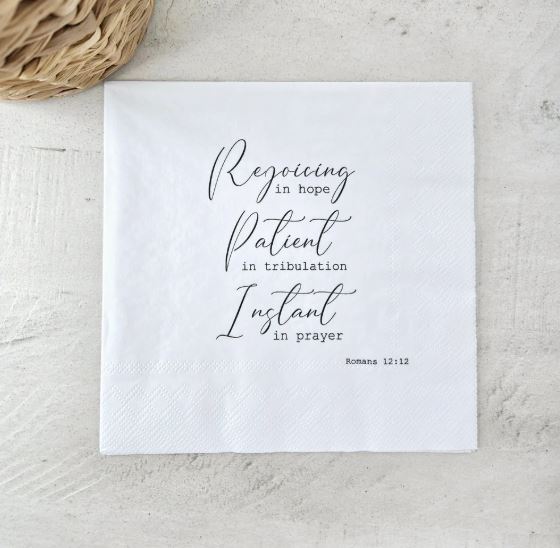 Rejoicing
in hope
Patient
in tribulation
Instant
in prayer
Romans 12:12